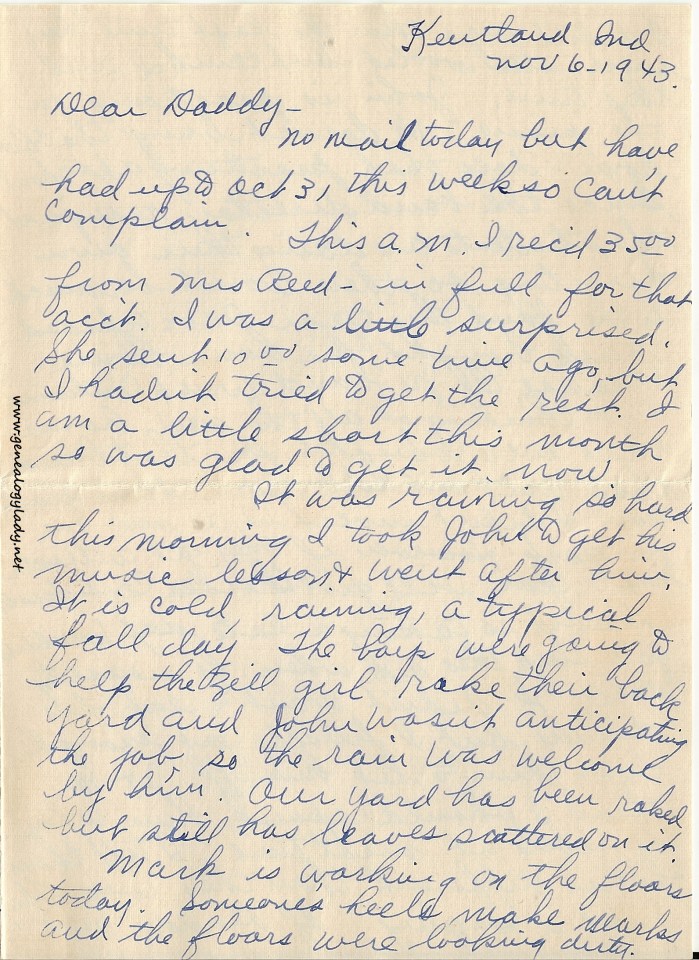 Kentland Ind
Nov 6-1943.
Dear Daddy-
No mail today but have
had up to Oct 31, this week so can't
complain. This a.m. I rec'd 3500
from Mrs Reed - in full for that
acc't. I was a little surprised.
She sent 1000 some time ago, but
I hadn't tried to get the rest. I
am a little short this month
so was glad to get it now
It was raining so hard
this morning I took John to get his
music lesson & went after him.
It is cold, raining, a typical
fall day. The boys were going to
help the Zell girl rake their back
yard and John wasn't anticipating
the job, so the rain was welcome
by him. Our yard has been raked
but still has leaves scattered on it
Mark is working on the floors
today. Someone's heels make marks
and the floors were looking dirty.
www.genealogylady.net